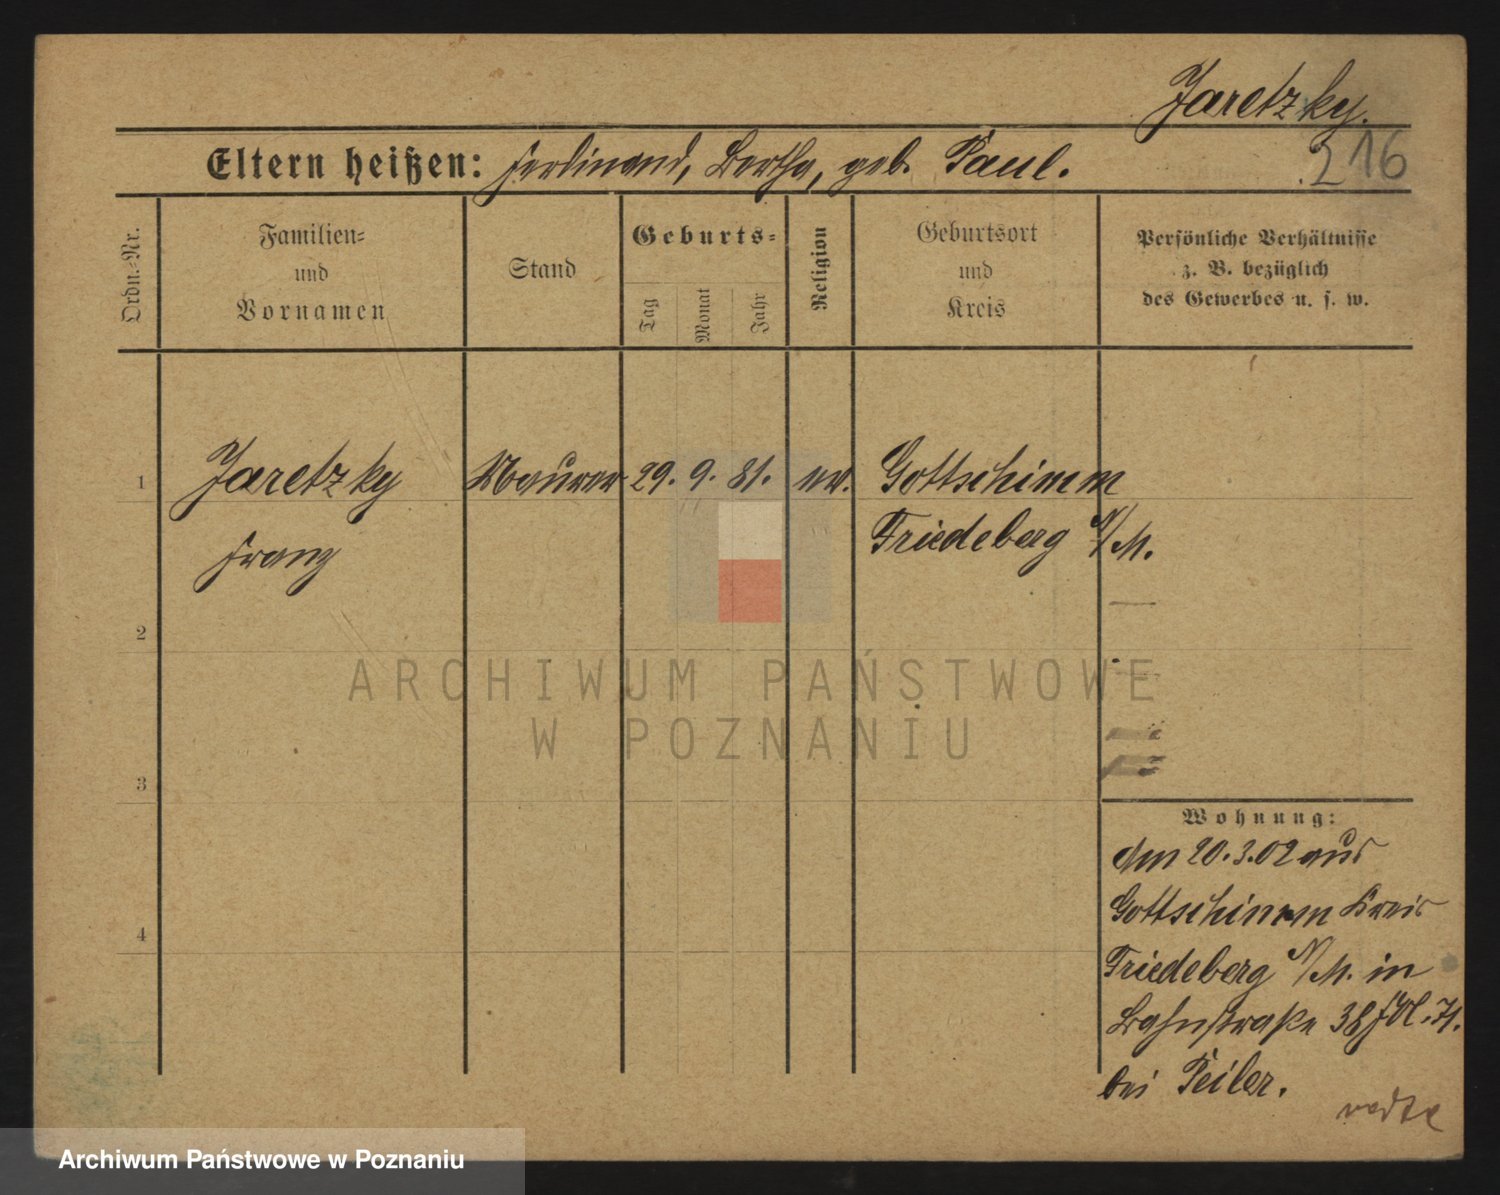 Jaretzky.
Eltern heißen: Ferdinand, Bertha, geb. Paul.
216
Ordn.-Nr.
Familien-
und
Vornamen
Stand
Geburts-
Tag
Monat
Jahr
Religion
Geburtsort
und
Kreis
Persönliche Verhältnisse
z. B. bezüglich
des Gewerbes u. s. w.
1 Jaretzky Maurer 29. 9. 81. ev. Gottschimm
Franz Friedeberg N/M.
2
3
4
Wohnung:
Am 20.3.02 aus
Gottschimm Kreis
Friedeberg N/M. in
Bahnstraße 38
bei
ARCHIWUM PAŃSTWOWE
W POZNANIU
Archiwum Państwowe w Poznaniu